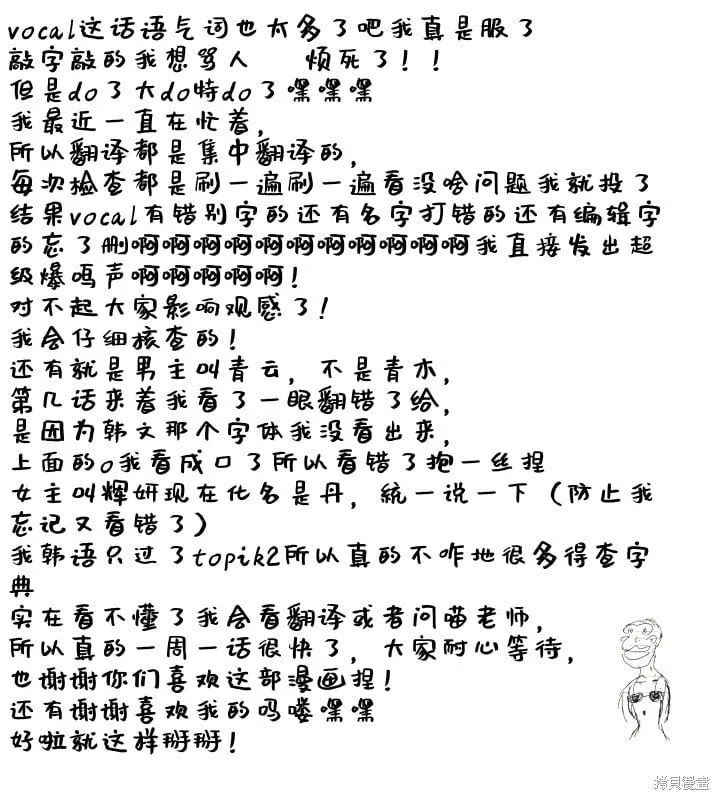 vocal这话语气词也太多了吧我真是服了
敲字敲的我想骂人 烦死了！！
但是do了大do特do了嘿嘿嘿
我最近一直在忙着，
所以翻译都是集中翻译的，
每次捡查都是刷一遍刷一遍看没啥问题我就投了
结果vocal有错别字的还有名字打错的还有编辑字
的忘了删啊啊啊啊啊啊啊啊啊啊啊我直接发出超
级爆鸣声啊啊啊啊啊！
对不起大家影响观感了！
我会仔细核查的！
还有就是男主叫青云，不是青木，
第几话来着我看了一眼翻错了给，
是因为韩文那个字体我没看出来，
上面的o我看成口了所以看错了抱一丝捏
女主叫辉妍现在化名是丹，统一说一下（防止我
忘记又看错了）
我韩语只过了topik2所以真的不咋地很多得查字
典
实在看不懂了我会看翻译或者问喵老师，
所以真的一周一话很快了，大家耐心等待，
也谢谢你们喜欢这部漫画捏！
还有谢谢喜欢我的吗喽嘿嘿
好啦就这样掰掰！
拷貝漫畫